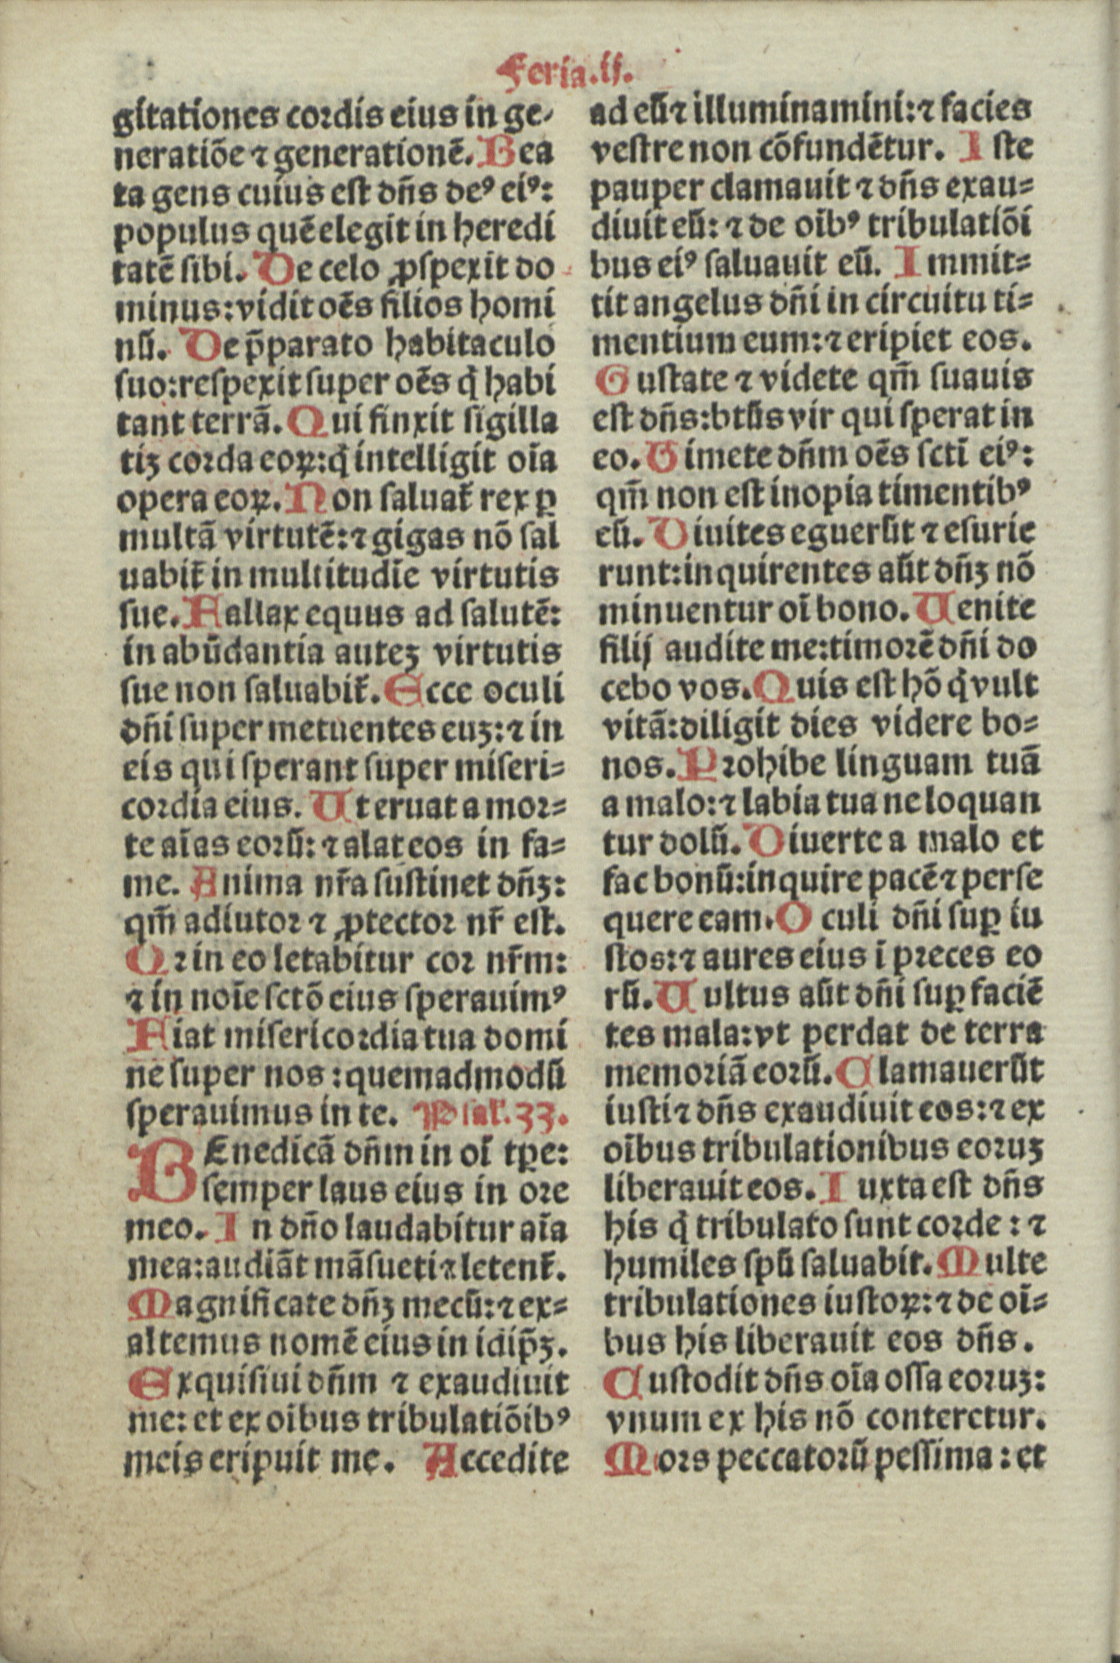 Feria.ij.
gitationes cordis eius in ge-
neratiõe ⁊ generationẽ. Bea
ta gens cuius est dñs deꝰ eiꝰ:
populus quẽ elegit in heredi
tatẽ sibi. De celo ꝓspexit do
minus: vidit oẽs filios homi
nũ. De p̃parato habitaculo
suo: respexit super oẽs q̇ habi
tant terrã. Qui finxit sigilla
tiʒ corda eoꝝ: q̇ intelligit oĩa
opera eoꝝ. Non saluat̃ rex ꝑ
multã virtutẽ: ⁊ gigas nõ sal
uabit̃ in multitudĩe virtutis
sue. Fallax equus ad salutẽ:
in abũdantia auteʒ virtutis
sue non saluabit̃. Ecce oculi
dñi super metuentes euʒ: ⁊ in
eis qui sperant super miseri-
cordia eius. Ut eruat a mor-
te aĩas eorũ: ⁊ alat eos in fa-
me. Anima nr̃a sustinet dñʒ:
qm̃ adiutor ⁊ ꝓtector nr̃ est.
Qꝛ in eo letabitur cor nr̃m:
⁊ in noĩe sctõ eius sperauimꝰ
Fiat misericordia tua domi
ne super nos: quemadmodũ
sperauimus in te. Psal̃. 33.
BEnedicã dñm in oĩ tꝑe:
semper laus eius in ore
meo. In dño laudabitur aĩa
mea: audiãt mãsueti ⁊ letent̃.
Magnificate dñʒ mecũ: ⁊ ex-
altemus nomẽ eius in idip̃ʒ.
Exquisiui dñm ⁊ exaudiuit
me: et ex oĩbus tribulatiõibꝰ
meis eripuit me. Accedite
ad eũ ⁊ illuminamini: ⁊ facies
vestre non cõfundẽtur. Iste
pauper clamauit ⁊ dñs exau-
diuit eũ: ⁊ de oĩbꝰ tribulatiõi
bus eiꝰ saluauit eũ. Immit-
tit angelus dñi in circuitu ti-
mentium eum: ⁊ eripiet eos.
Gustate ⁊ videte qm̃ suauis
est dñs: btũs vir qui sperat in
eo. Timete dñm oẽs scti eiꝰ:
qm̃ non est inopia timentibꝰ
eũ. Diuites eguerũt ⁊ esurie
runt: inquirentes aũt dñʒ nõ
minuentur oĩ bono. Uenite
filij audite me: timorẽ dñi do
cebo vos. Quis est hõ q̇ vult
vitã: diligit dies videre bo-
nos. Prohibe linguam tuã
a malo: ⁊ labia tua ne loquan
tur dolũ. Diuerte a malo et
fac bonũ: inquire pacẽ ⁊ perse
quere eam. Oculi dñi suꝑ iu
stos: ⁊ aures eius ĩ preces eo
rũ. Uultus aũt dñi suꝑ faciẽ
tes mala: vt perdat de terra
memoriã eorũ. Clamauerũt
iusti ⁊ dñs exaudiuit eos: ⁊ ex
oĩbus tribulationibus eoruʒ
liberauit eos. Iuxta est dñs
his q̇ tribulato sunt corde: ⁊
humiles spũ saluabit. Multe
tribulationes iustoꝝ: ⁊ de oĩ-
bus his liberauit eos dñs.
Custodit dñs oĩa ossa eoruʒ:
vnum ex his nõ conteretur.
Mors peccatorũ pessima: et